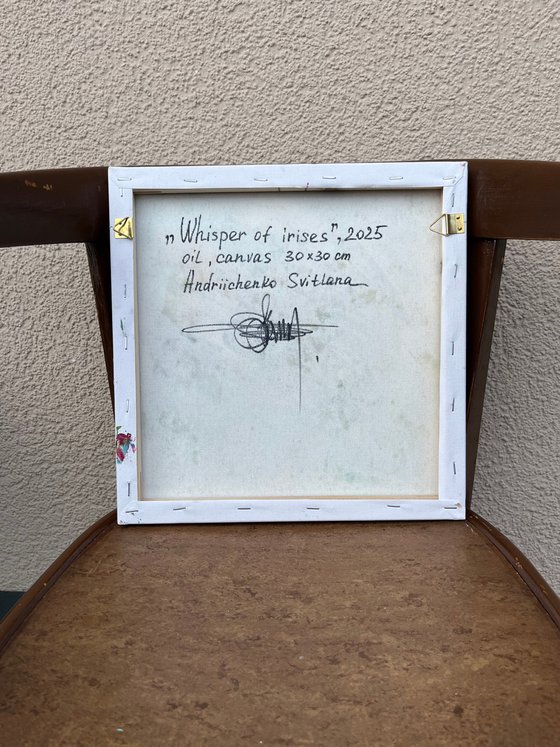 „Whisper of irises", 2025
oil, canvas 30x30 cm
Andriichenko Svitlana